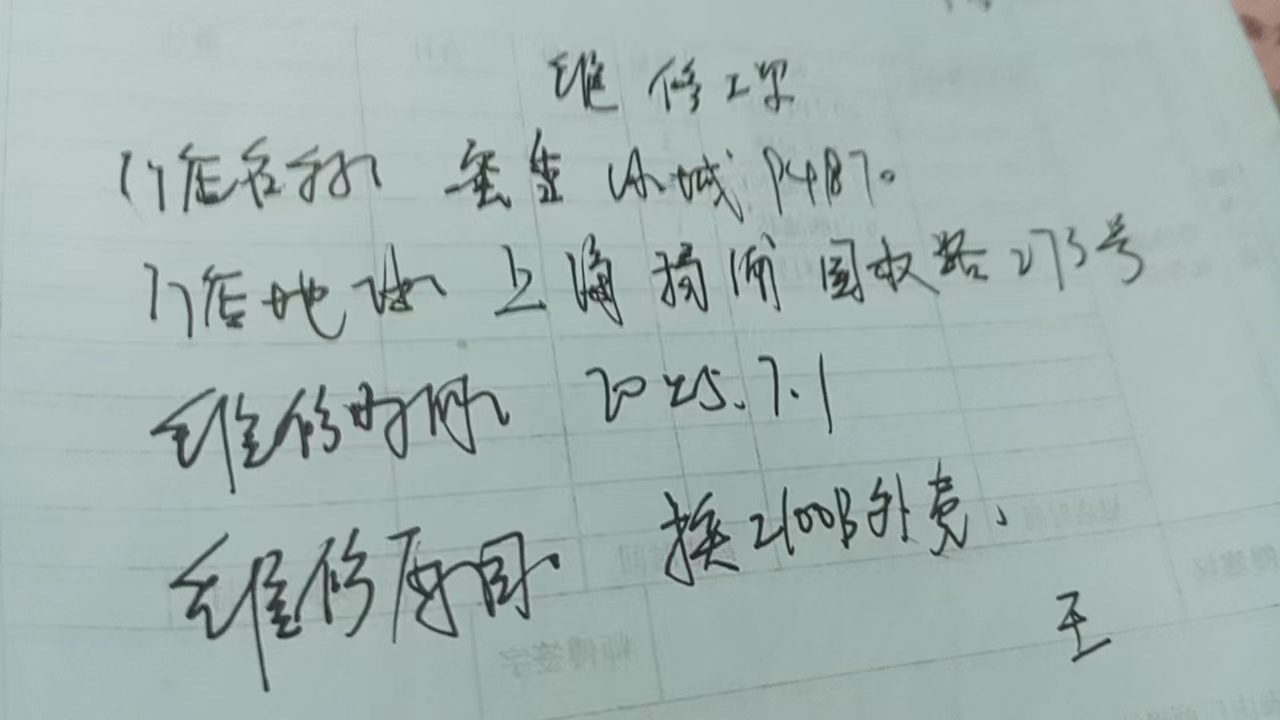 维修工单
门店名称 蜜雪冰城
门店地址 上海杨浦国权路273号
维修时间 2025.7.1
维修原因 换2100B外壳、
王